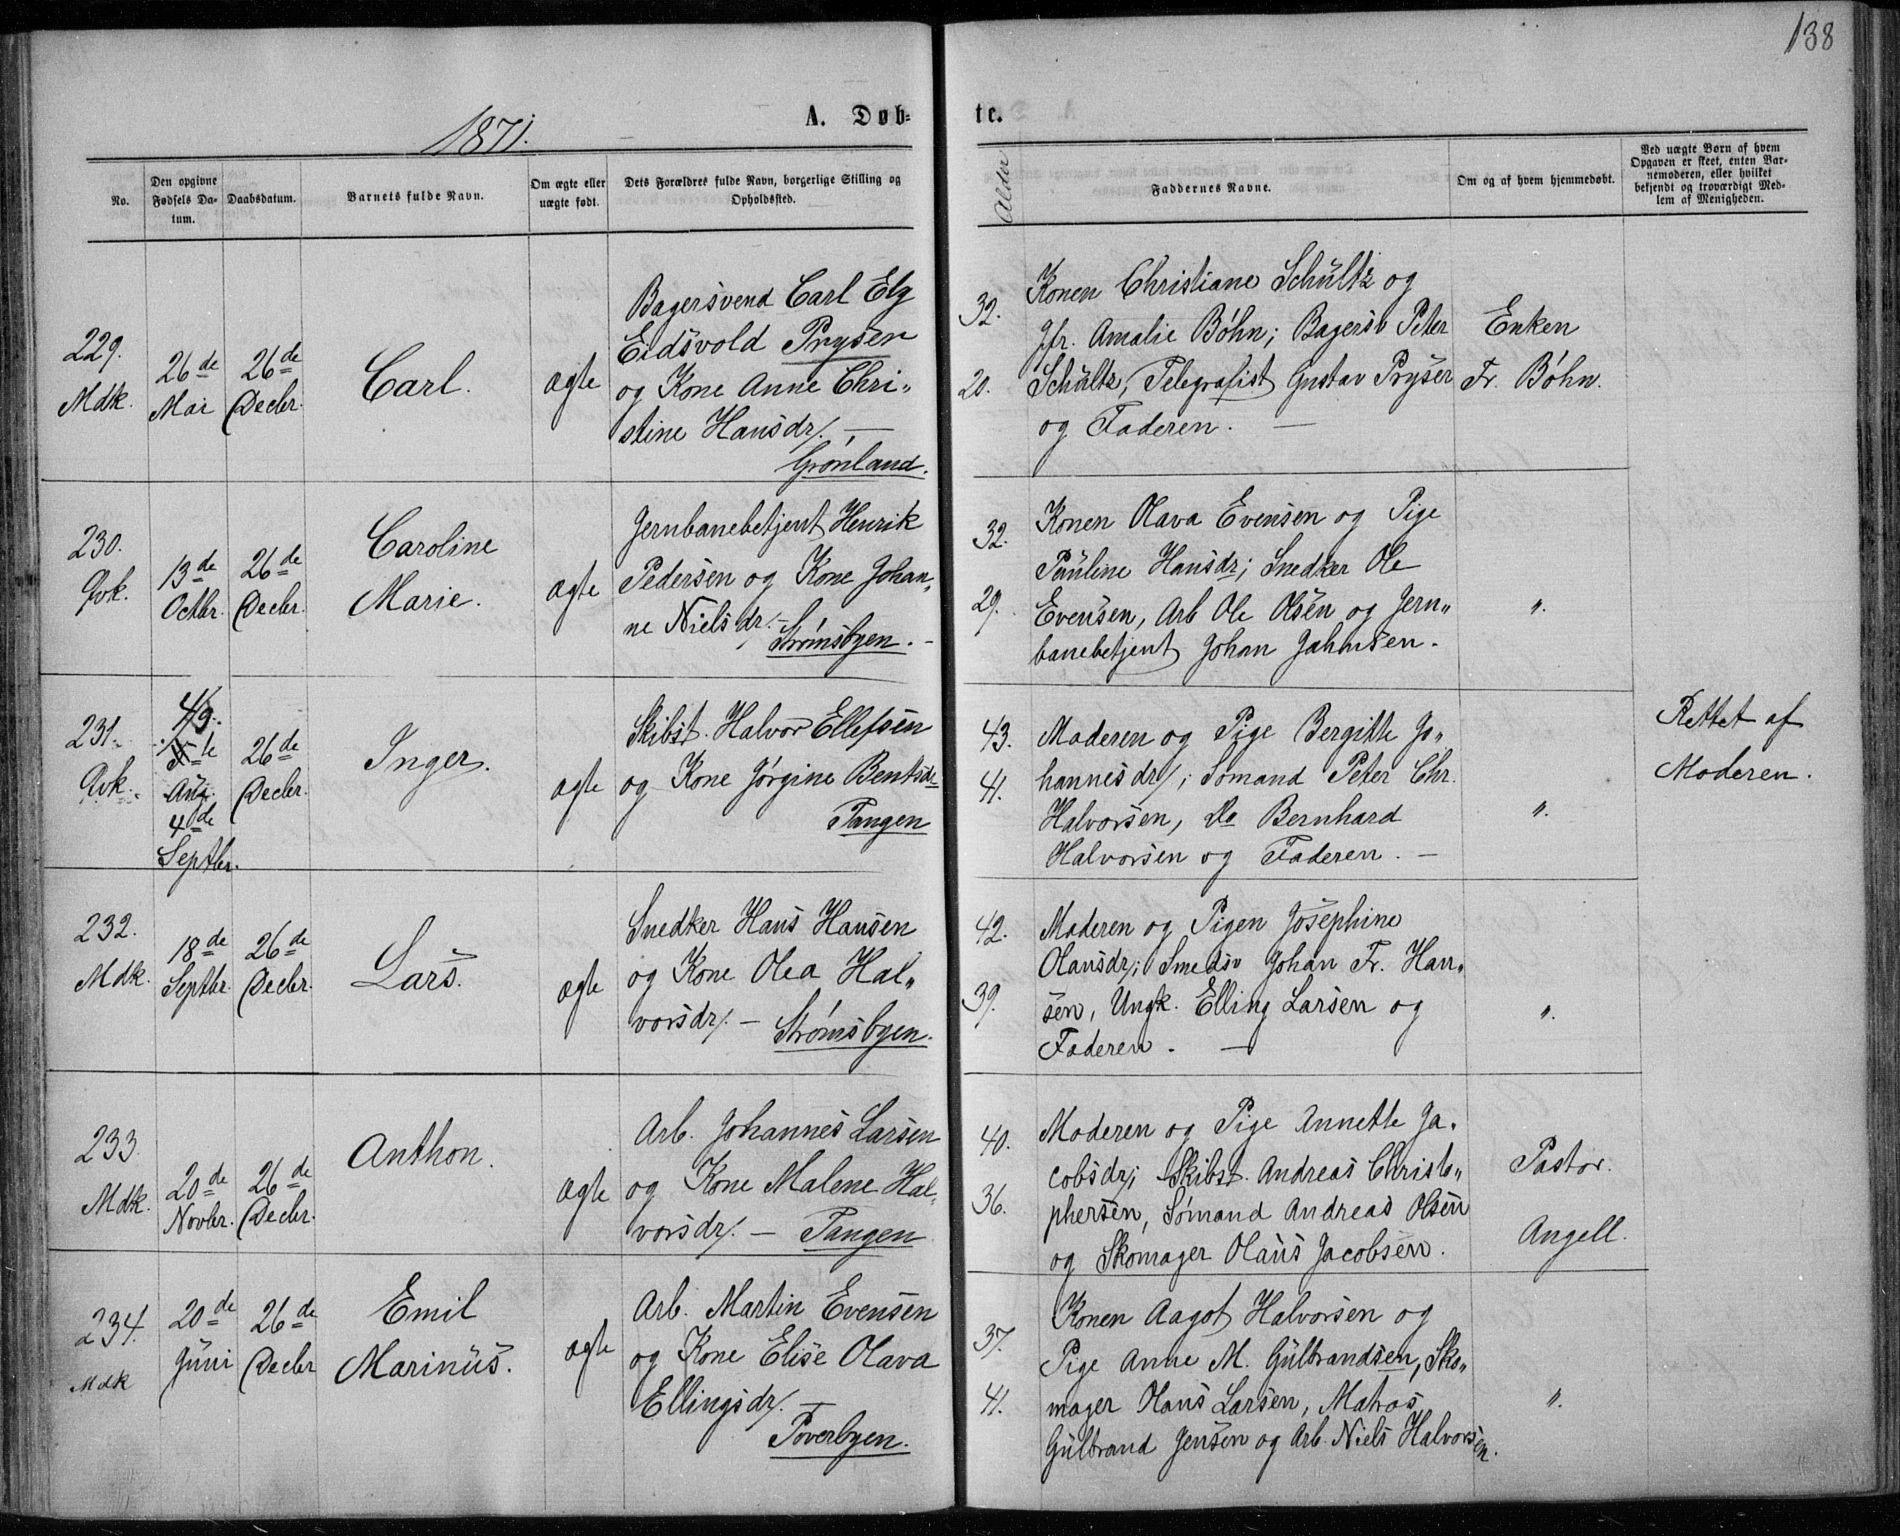 138
1871.
A. Døb-
te.
No.
Den opgivne Fødsels Da-
tum.
Daabsdatum.
Barnets fulde Navn.
Om ægte eller
uægte født.
Dets Forældres fulde Navn, borgerlige Stilling og
Opholdssted.
Alder
Faddernes Navne.
Om og af hvem hjemmedøbt.
Ved uægte Børn af hvem
Opgaven er skeet, enten Bar-
nemoderen, eller hvilket
bekjendt og troværdigt Med-
lem af Menigheden.
229.
Mdk.
26de
Mai
26de
Decbr.
Carl.
ægte
Bagersvend Carl Elg
Eidsvold Prysen
og Kone Anne Chri„
stine Hansdr/. —
Grønland.
32.
20.
Konen Christiane Schultz og
Jfr. Amalie Bøhn; Bagersv Peter
Schultz, Telegrafist Gustav Pryser
og Faderen. —
Enken
Fr. Bøhn.
230.
Qvk.
13de
Octbr.
26de
Decbr.
Caroline
Marie.
ægte
Jernbanebetjent Henrik
Pedersen og Kone Johan„
ne Nielsdr. -
Strømsbyen. -
32.
29.
Konen Olava Evensen og Pige
Pauline Hansdr; Snedker Ole
Evensen, Arb Ole Olsen og Jern„
banebetjent Johan Jahnsen.
".
231.
Qvk.
4/9.
26de
Decbr.
4de
Septbr.
Inger.
ægte
Skibst. Halvor Ellefsen
og Kone Jørgine Bentsdr
Tangen
43.
41.
Moderen og Pige Bergitte Jo„
hannesdr/; Sømand Peter Chr.
Halvorsen, Do Bernhard
Halvorsen og Faderen. —
".
Rettet af
Moderen.
232.
Mdk.
18de
Septbr.
26de
Decbr.
Lars.
ægte
Snedker Hans Hansen
og Kone Olea Hal„
vorsdr/. — Strømsbyen.
42.
39.
Moderen og Pigen Josephine
Olausdr/; Smedsv Johan Fr. Han„
sen, Ungk. Elling Larsen og
Faderen. —
".
233.
Mdk.
20de
Novbr.
26de
Decbr.
Anthon.
ægte
Arb. Johannes Larsen
og Kone Malene Hal„
vorsdr/. — Tangen
40.
36.
Moderen og Pige Annette Ja„
cobsdr/; Skibst. Andreas Christo„
phersen, Sømand Andreas Olsen
og Skomager Olaus Jacobsen.
Pastor
Angell.
234.
Mdk
20de
Juni
26de
Decbr
Emil
Marinus.
ægte
Arb. Martin Evensen
og Kone Elise Olava
Ellingsdr/. —
Toverbyen.
37.
41.
Konen Aagot Halvorsen og
Pige Anne M. Gulbrandsen, Sko„
mager Olaus Larsen, Matros
Gulbrand Jensen og Arb. Niels Halvorsen.
".